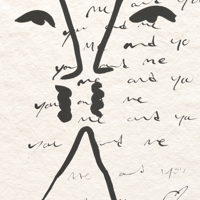 me and you
you and me
me and yo
you and me
me and you
you and me
me and yo
you and me
me and you